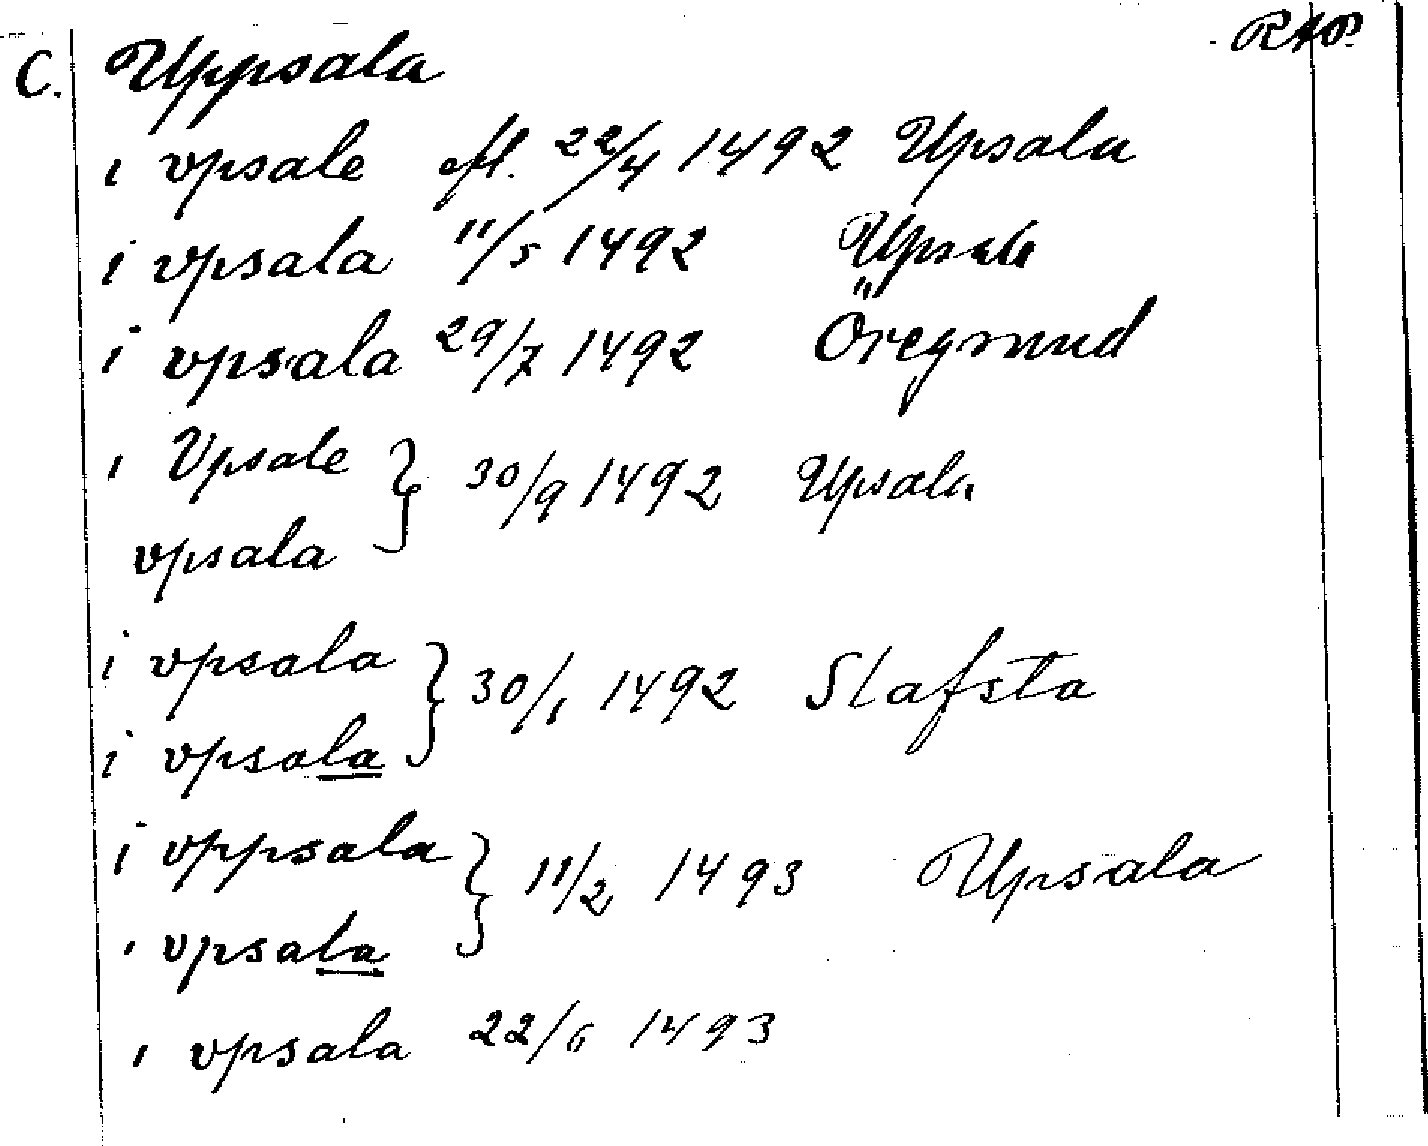 C. Uppsala RAP.
i vpsale efl. 22/4 1492 Upsala
i vpsala 11/5 1492 Upsala
i vpsala 29/7 1492 Öregrund
i Vpsale } 30/9 1492 Upsala
vpsala
i vpsala } 30/1 1492 Slafsta
i vpsala
i vppsala } 11/2 1493 Upsala
i vpsala
i vpsala 22/6 1493